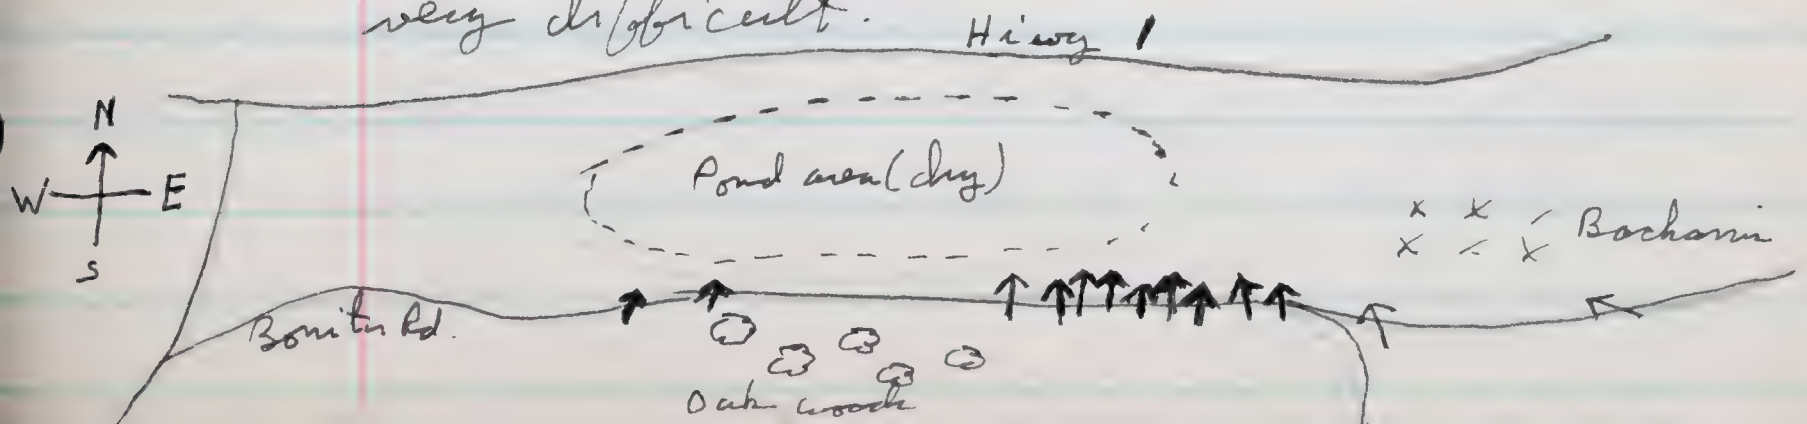 very difficult.
Hiwy 1
N
W E
S
Pond area (dry)
Baccharis
Bonita Rd.
Oak woods